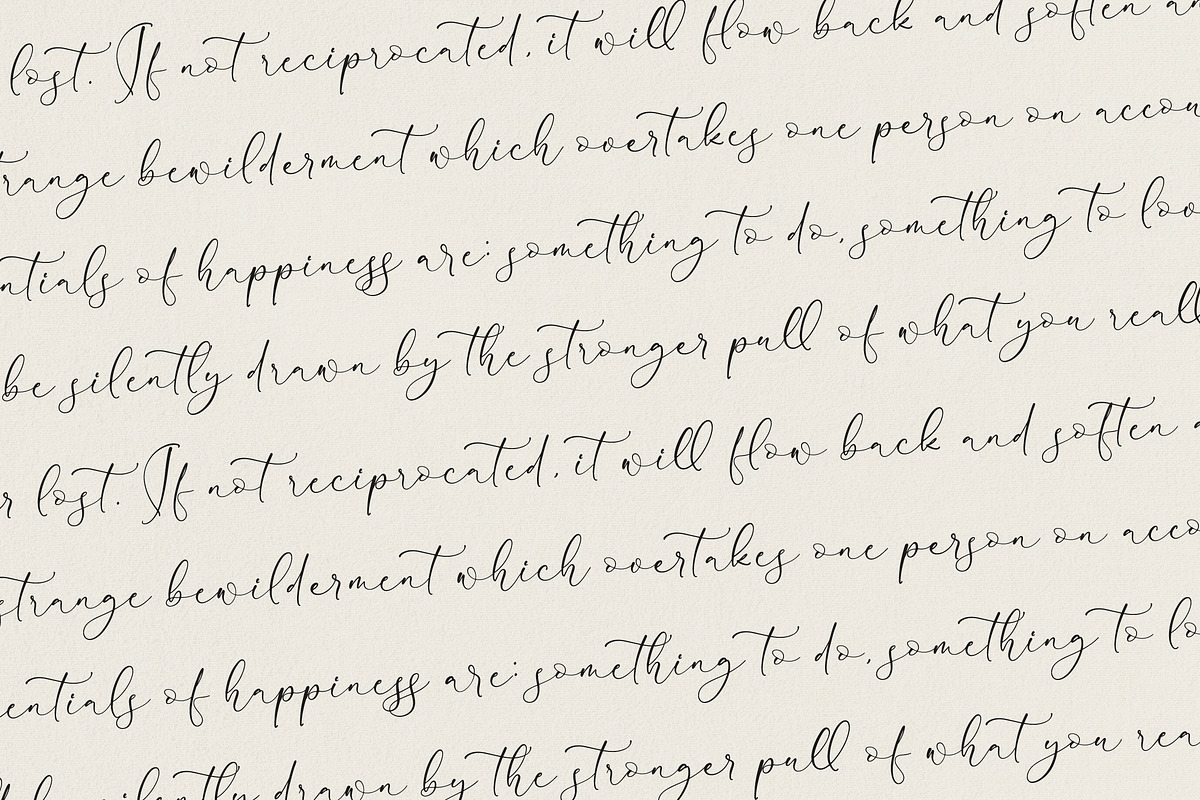 lost. If not reciprocated, it will flow back and soften an
range bewilderment which overtakes one person on accou
ntials of happiness are: something to do, something to lov
be silently drawn by the stronger pull of what you reall
r lost. If not reciprocated, it will flow back and soften a
strange bewilderment which overtakes one person on acco
entials of happiness are: something to do, something to lo
silently drawn by the stronger pull of what you rea